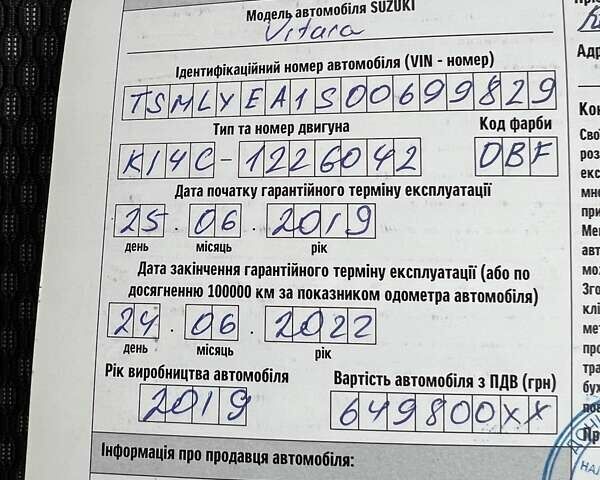 Модель автомобіля SUZUKI
Vitara
Ідентифікаційний номер автомобіля (VIN - номер)
TSMLYEA1S00699829
Тип та номер двигуна
Код фарби
K14C-1226042
0BF
Дата початку гарантійного терміну експлуатації
25.06.2019
день місяць рік
Дата закінчення гарантійного терміну експлуатації (або по
досягненню 100000 км за показником одометра автомобіля)
24.06.2022
день місяць рік
Рік виробництва автомобіля
Вартість автомобіля з ПДВ (грн)
2019
649800XX
Інформація про продавця автомобіля: